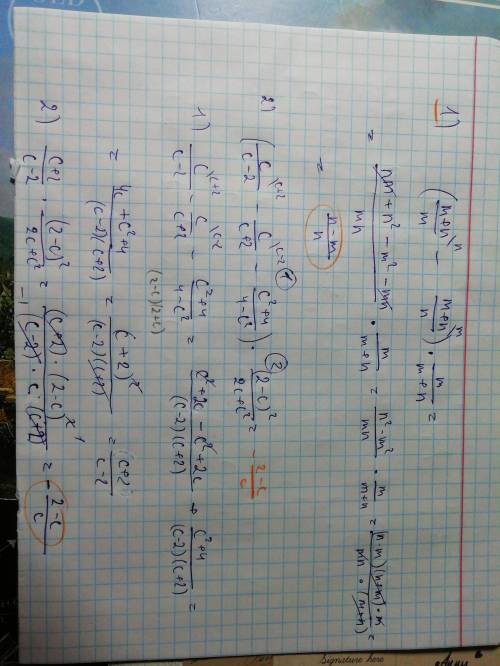 1) ((m+n)/m \n − (m+n)/n \m) · m/(m+n) =
= (nm + n² − m² − mn)/mn · m/(m+n) = (n² − m²)/mn · m/(m+n) = ((n−m)(n+m)·m)/(mn · (m+n)) =
= (n−m)/n
2) (c/(c−2) \c+2 − c/(c+2) \c−2 − (c²+4)/(4−c²)) ① · ② (2−c)²/(2c+c²) = − (2−c)/c
(2−c)(2+c)
1) c/(c−2) \c+2 − c/(c+2) \c−2 − (c²+4)/(4−c²) = (c²+2c − c² + 2c)/((c−2)(c+2)) + (c²+4)/((c−2)(c+2)) =
= (4c + c² + 4)/((c−2)(c+2)) = (c+2)²/((c−2)(c+2)) = (c+2)/(c−2)
2) (c+2)/(c−2) · (2−c)²/(2c+c²) = ((c+2) · (2−c)²)/(−1 (c−2) · c (c+2)) = − (2−c)/c
Signature here